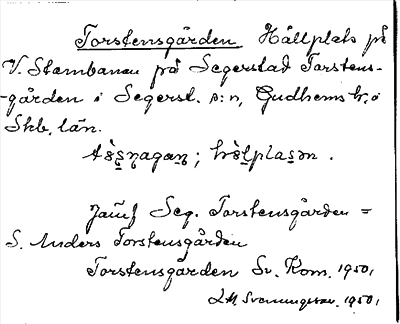 Torstensgården Hållplats på
V. Stambanan på Segerstad Torstens-
-gården i Segerst. s:n, Gudhems hd. i
Skb. län.
Jämf Seg. Torstensgården =
S. Anders Torstensgården
Torstensgården Sv. Kom. 1950,
1950,